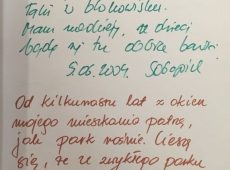 Taki u blokowisku.
Mam nadzieję, że dzieci
będą się tu dobrze bawić.
5.06.2004.
Od kilkunastu lat z okien
mojego mieszkania patrzę,
jak park rośnie. Cieszę
się, że ze zwykłego parku